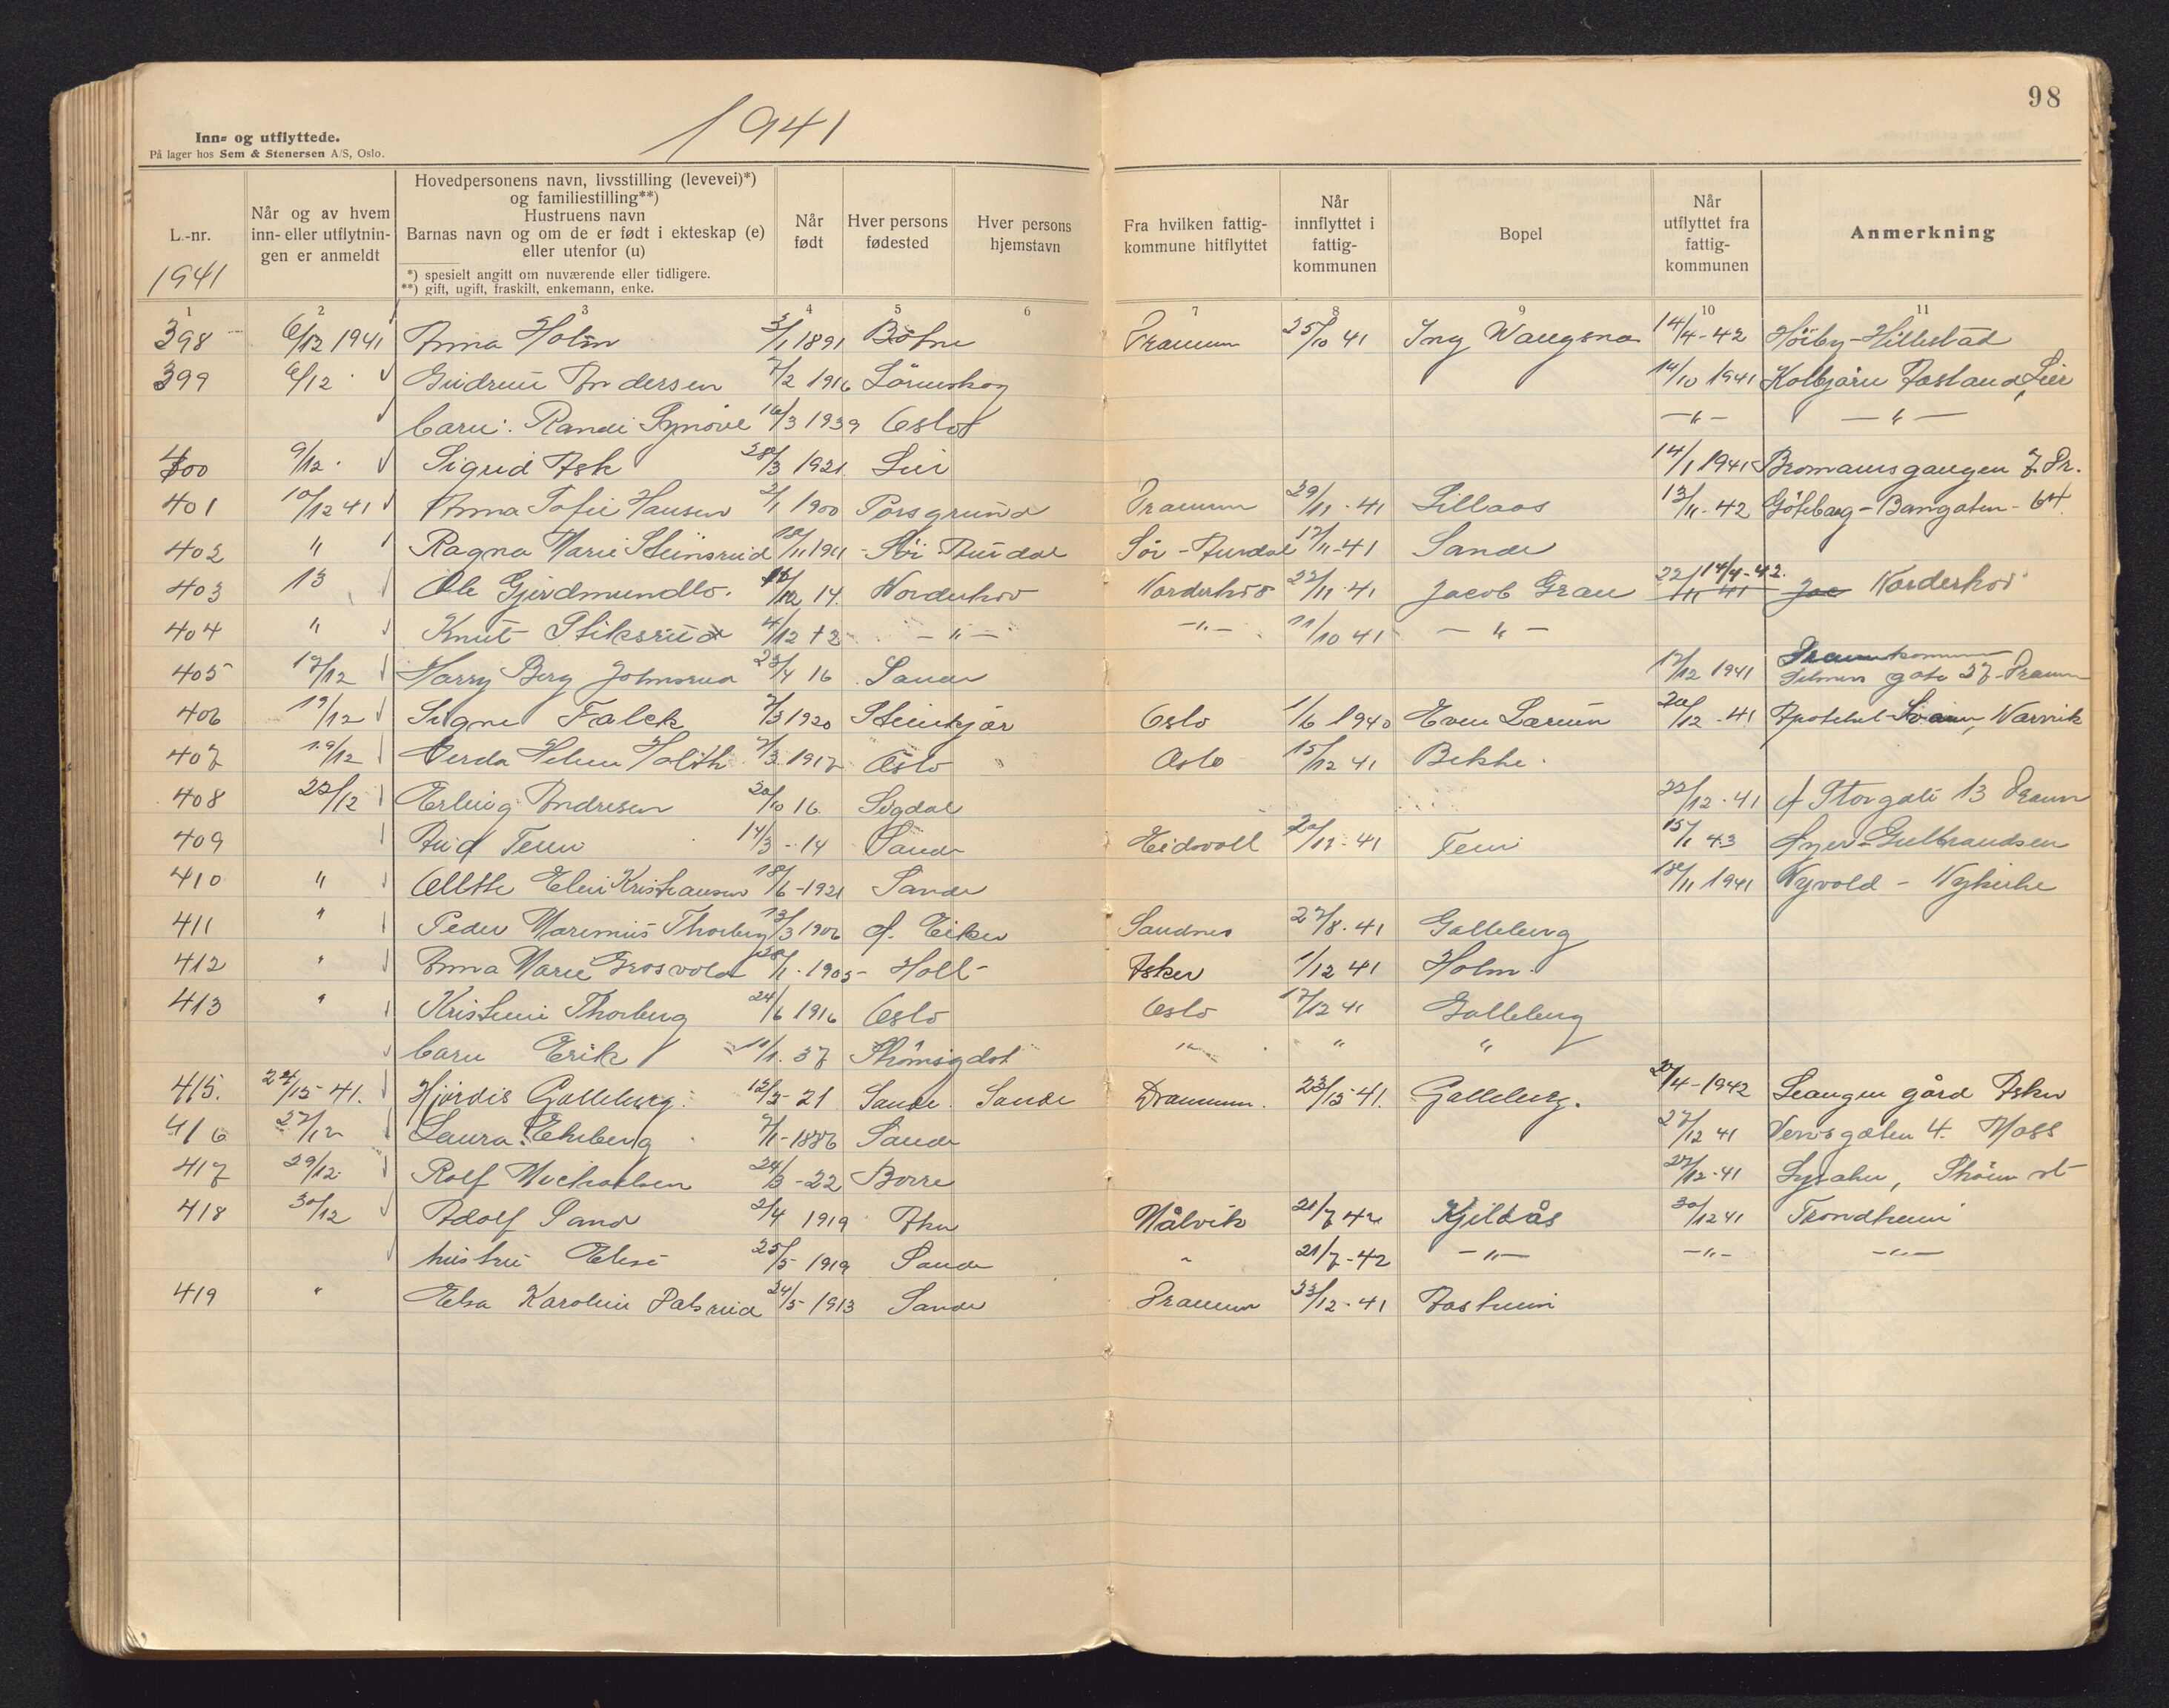 98
1941
Inn- og utflyttede.
På lager hos Sem & Stenersen A/S, Oslo.
L.-nr.
1941
Når og av hvem inn- eller utflytnin- gen er anmeldt
Hovedpersonens navn, livsstilling (levevei)*)
og familiestilling**)
Hustruens navn
Barnas navn og om de er født i ekteskap (e)
eller utenfor (u)
*) spesielt angitt om nuværende eller tidligere.
**) gift, ugift, fraskilt, enkemann, enke.
Når født
Hver persons fødested
Hver persons hjemstavn
Fra hvilken fattig- kommune hitflyttet
Når innflyttet i fattig- kommunen
Bopel
Når utflyttet fra fattig- kommunen
Anmerkning
1 2 3 4 5 6 7 8 9 10 11
398 6/12 1941 Anna Holm 3/1 1891 Dramm 25/10 41 14/4-42 Höiby-Hillestad
399 6/12 Gudrun Andersen 7/2 1916 Lörenskog 14/10 1941 Lier
barn: Randi Synöve 16/3 1939 Oslo -"- -"-
400 9/12 Sigrid Ask 28/3 1921 Lier 14/1 1941 Bromannsgangen 7 Dr.
401 10/12 41 Anna Sofie Hansen 2/1 1900 Porsgrund Dramm 29/11-41 Lillaas 13/11-42 Göteborg-Bangaten-64
402 " Ragna Marie Steinsrud 18/11 1911 Sör-Aurdal Sör-Aurdal 17/11-41 Sande
403 13 Ole Gjerdmundbo. 14. Norderhov Norderhov 22/11-41 Jacob Grau 22/11 41 14/4-42. Norderhov
404 " Knut Stiksrud 4/12 -"- -"- 11/10 41 -"-
405 17/12 Harry Berg Johnsrud 23/4 16 Sande 17/12 1941 gate 37-Dramm
406 19/12 Signe Falck 7/3 1920 Steinkjær Oslo 1/6 1940 Even Lærum 20/12-41 Narvik
407 19/12 Gerda Holth 1917 Oslo Oslo 15/12 41 Bekke.
408 22/12 Erling Andresen 20/10 16 Sigdal 22/12-41 Storgate 13 Dramm
409 14/3-14 Sande Eidsvoll 41 15/1 43 Gulbrandsen
410 " Kristiansen 18/6-1921 Sande 18/11 1941 Nyvold - Nykirke
411 " Peder Marenius Thorberg 13/3 1906 Ö. Eiker Sandnes 27/8-41 Galleberg
412 " Anna Marie Grosvold /1-1905- Holt- Asker 1/12 41 Holm.
413 " Thorberg 24/6 1916 Oslo Oslo 17/12 41 Galleberg
barn Erik 37 " "
415. 24/12-41. Hjördis Galleberg. 21 Sande. Sande Drammen. 23/12-41. Galleberg. /4-1942 Leangen gård Asker
416 27/12 Laura Ekeberg 7/1-1886 Sande 27/12 41 4. Moss
417 29/12 Rolf Michaelsen 24/3-22 Borre 27/12-41
418 30/12 Adolf Sand 2/4 1919 Målvik 21/7 42 Kjeldås 30/12 41 Trondheim
hustru Else 25/5-1919 Sande " 21/7-42 -"- -"- -"-
419 " Elsa Karoline Palsrud 24/5-1913 Sande Dramm 23/12-41 Aasheim